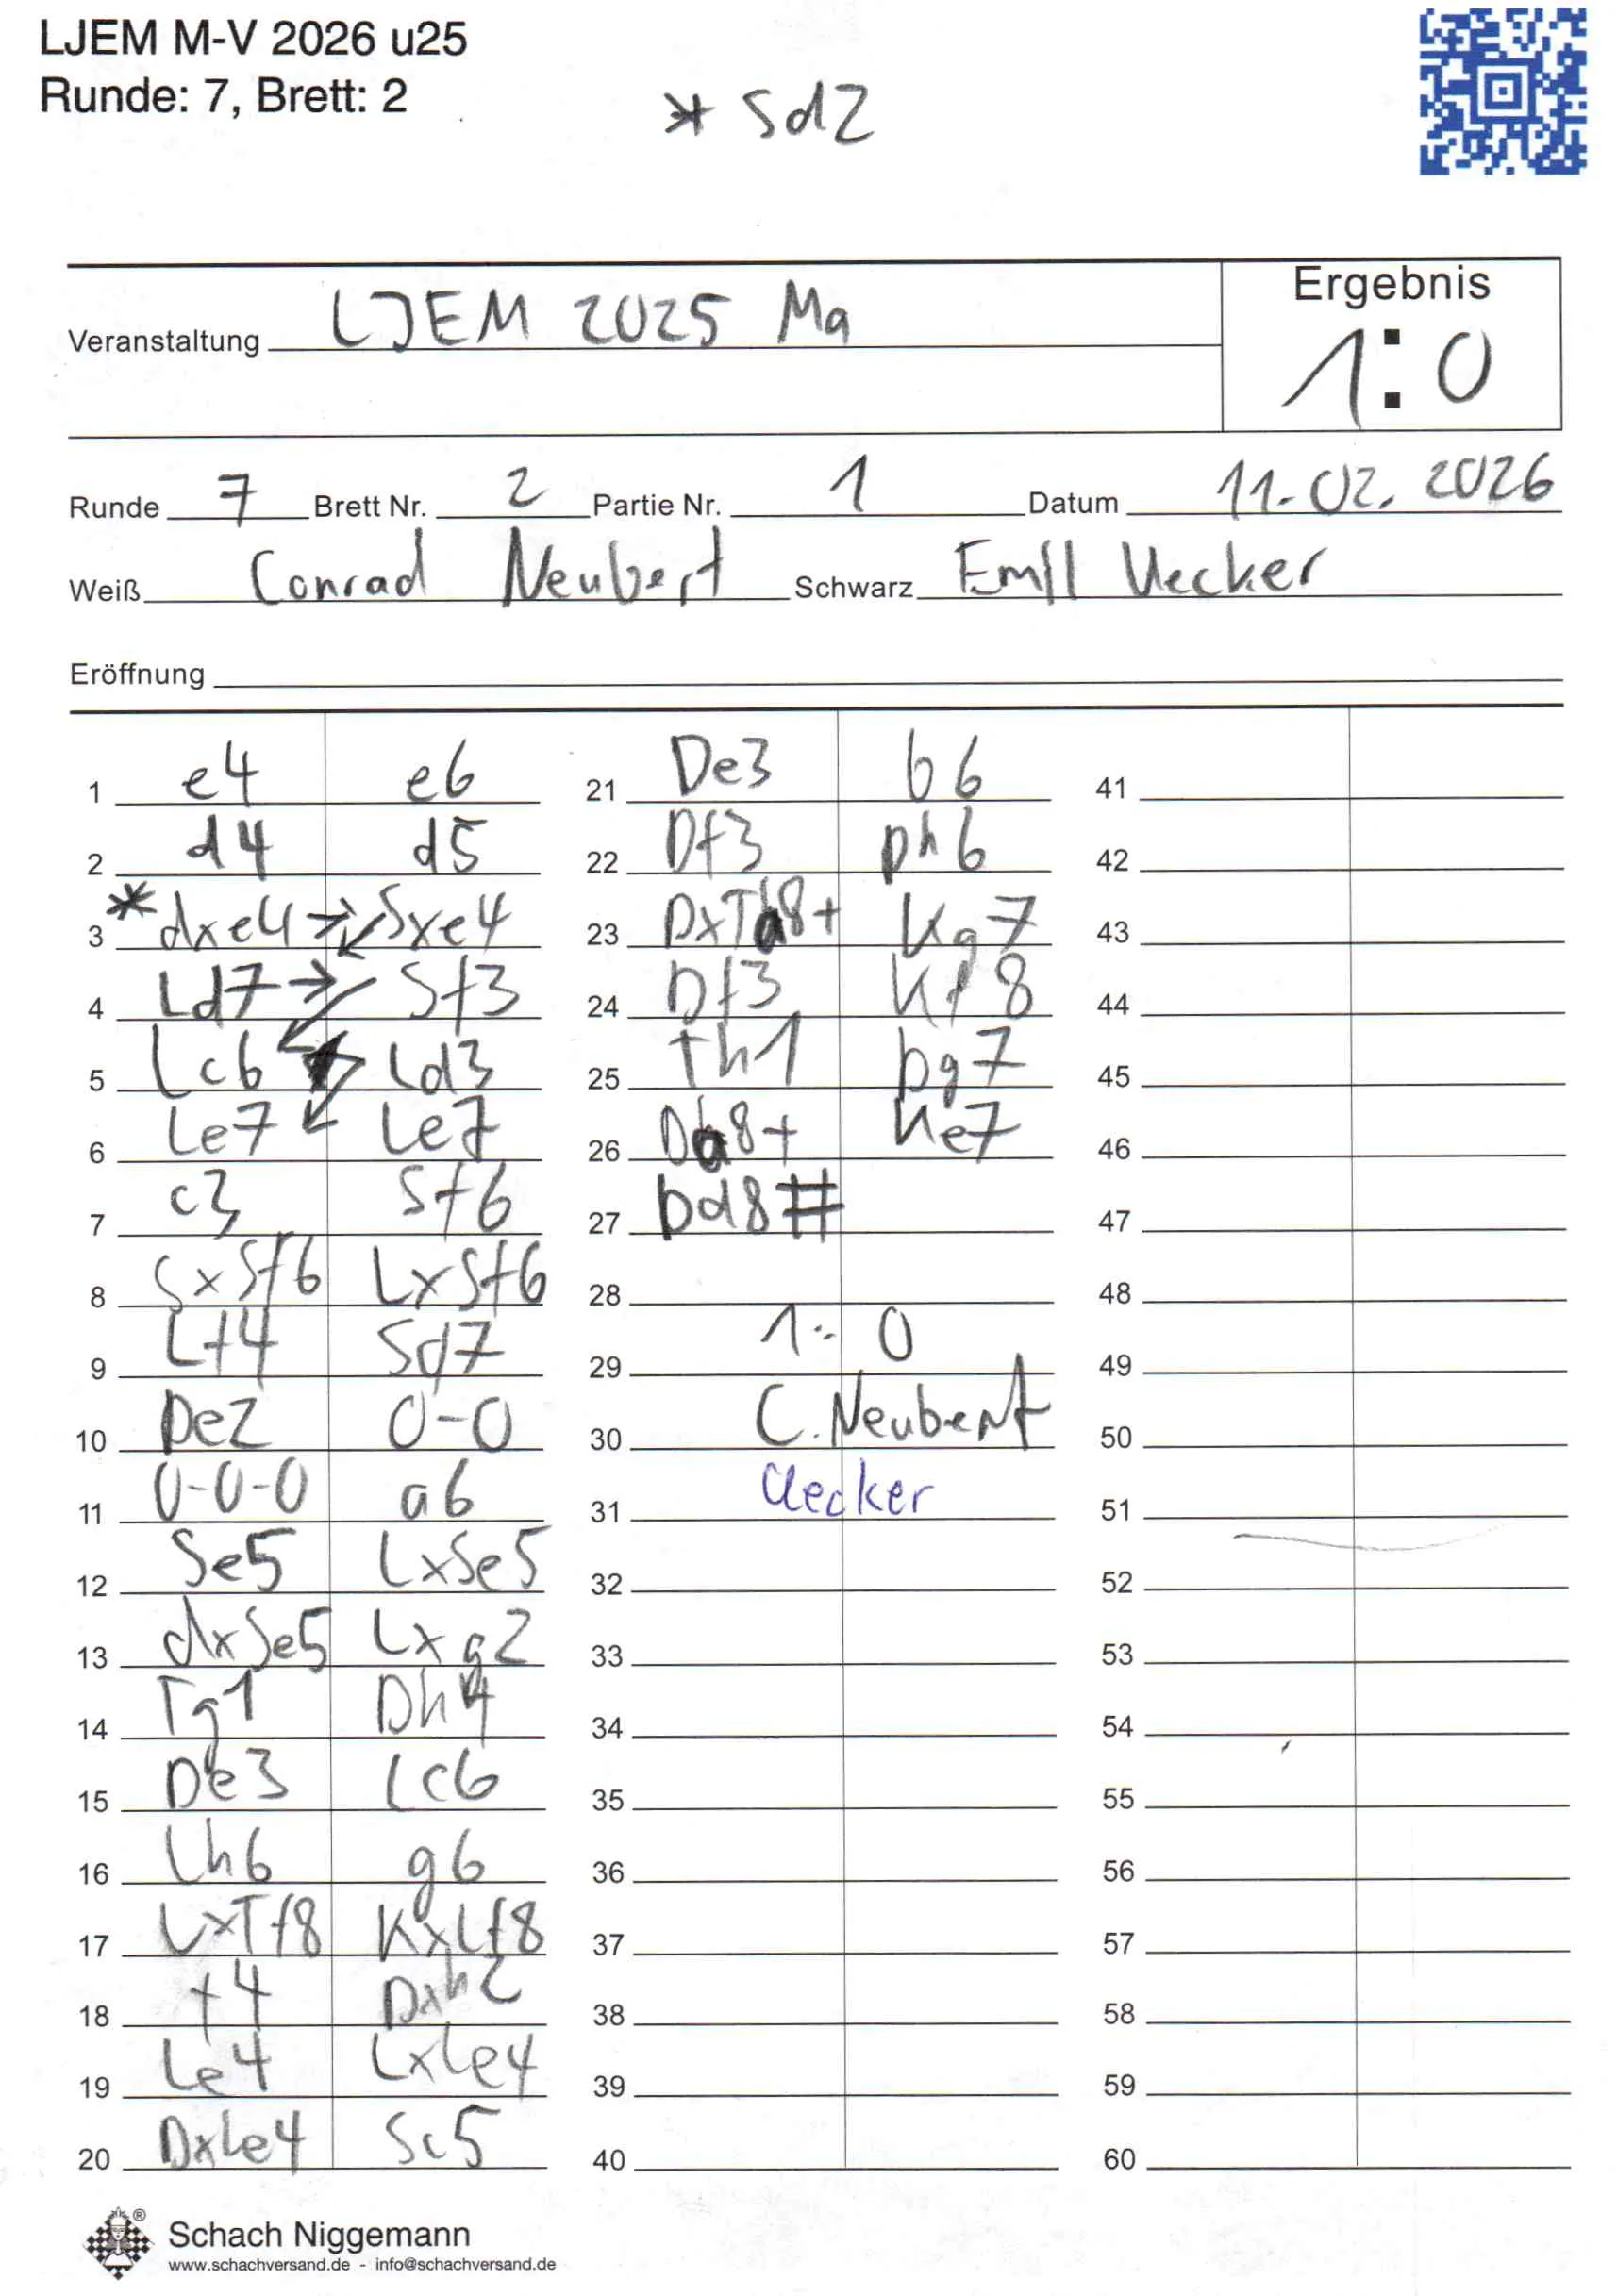 LJEM M-V 2026 u25
Runde: 7, Brett: 2
* Sd2
Ergebnis
Veranstaltung LJEM 2025 Ma
1:0
Runde 7 Brett Nr. 2 Partie Nr. 1 Datum 11.02.2026
Weiß Conrad Neubert Schwarz Emil Uecker
Eröffnung
1 e4 e6 21 De3 b6 41
2 d4 d5 22 Df3 Dh6 42
3 * dxe4 → Sxe4 23 DxTa8+ Kg7 43
4 Ld7 → Sf3 24 Df3 Kf8 44
5 Lc6 Ld3 25 Th1 Dg7 45
6 Le7 Le7 26 Da8+ Ke7 46
7 c3 Sf6 27 Dd8# 47
8 SxSf6 LxSf6 28 48
9 Lf4 Sd7 29 1:0 49
10 De2 0-0 30 C. Neubert 50
11 0-0-0 a6 31 Uecker 51
12 Se5 LxSe5 32 52
13 dxSe5 Lxg2 33 53
14 Tg1 Dh4 34 54
15 De3 Lc6 35 55
16 Lh6 g6 36 56
17 LxTf8 KxLf8 37 57
18 f4 Dxh2 38 58
19 Le4 LxLe4 39 59
20 DxLe4 Sc5 40 60
®
Schach Niggemann
www.schachversand.de - info@schachversand.de